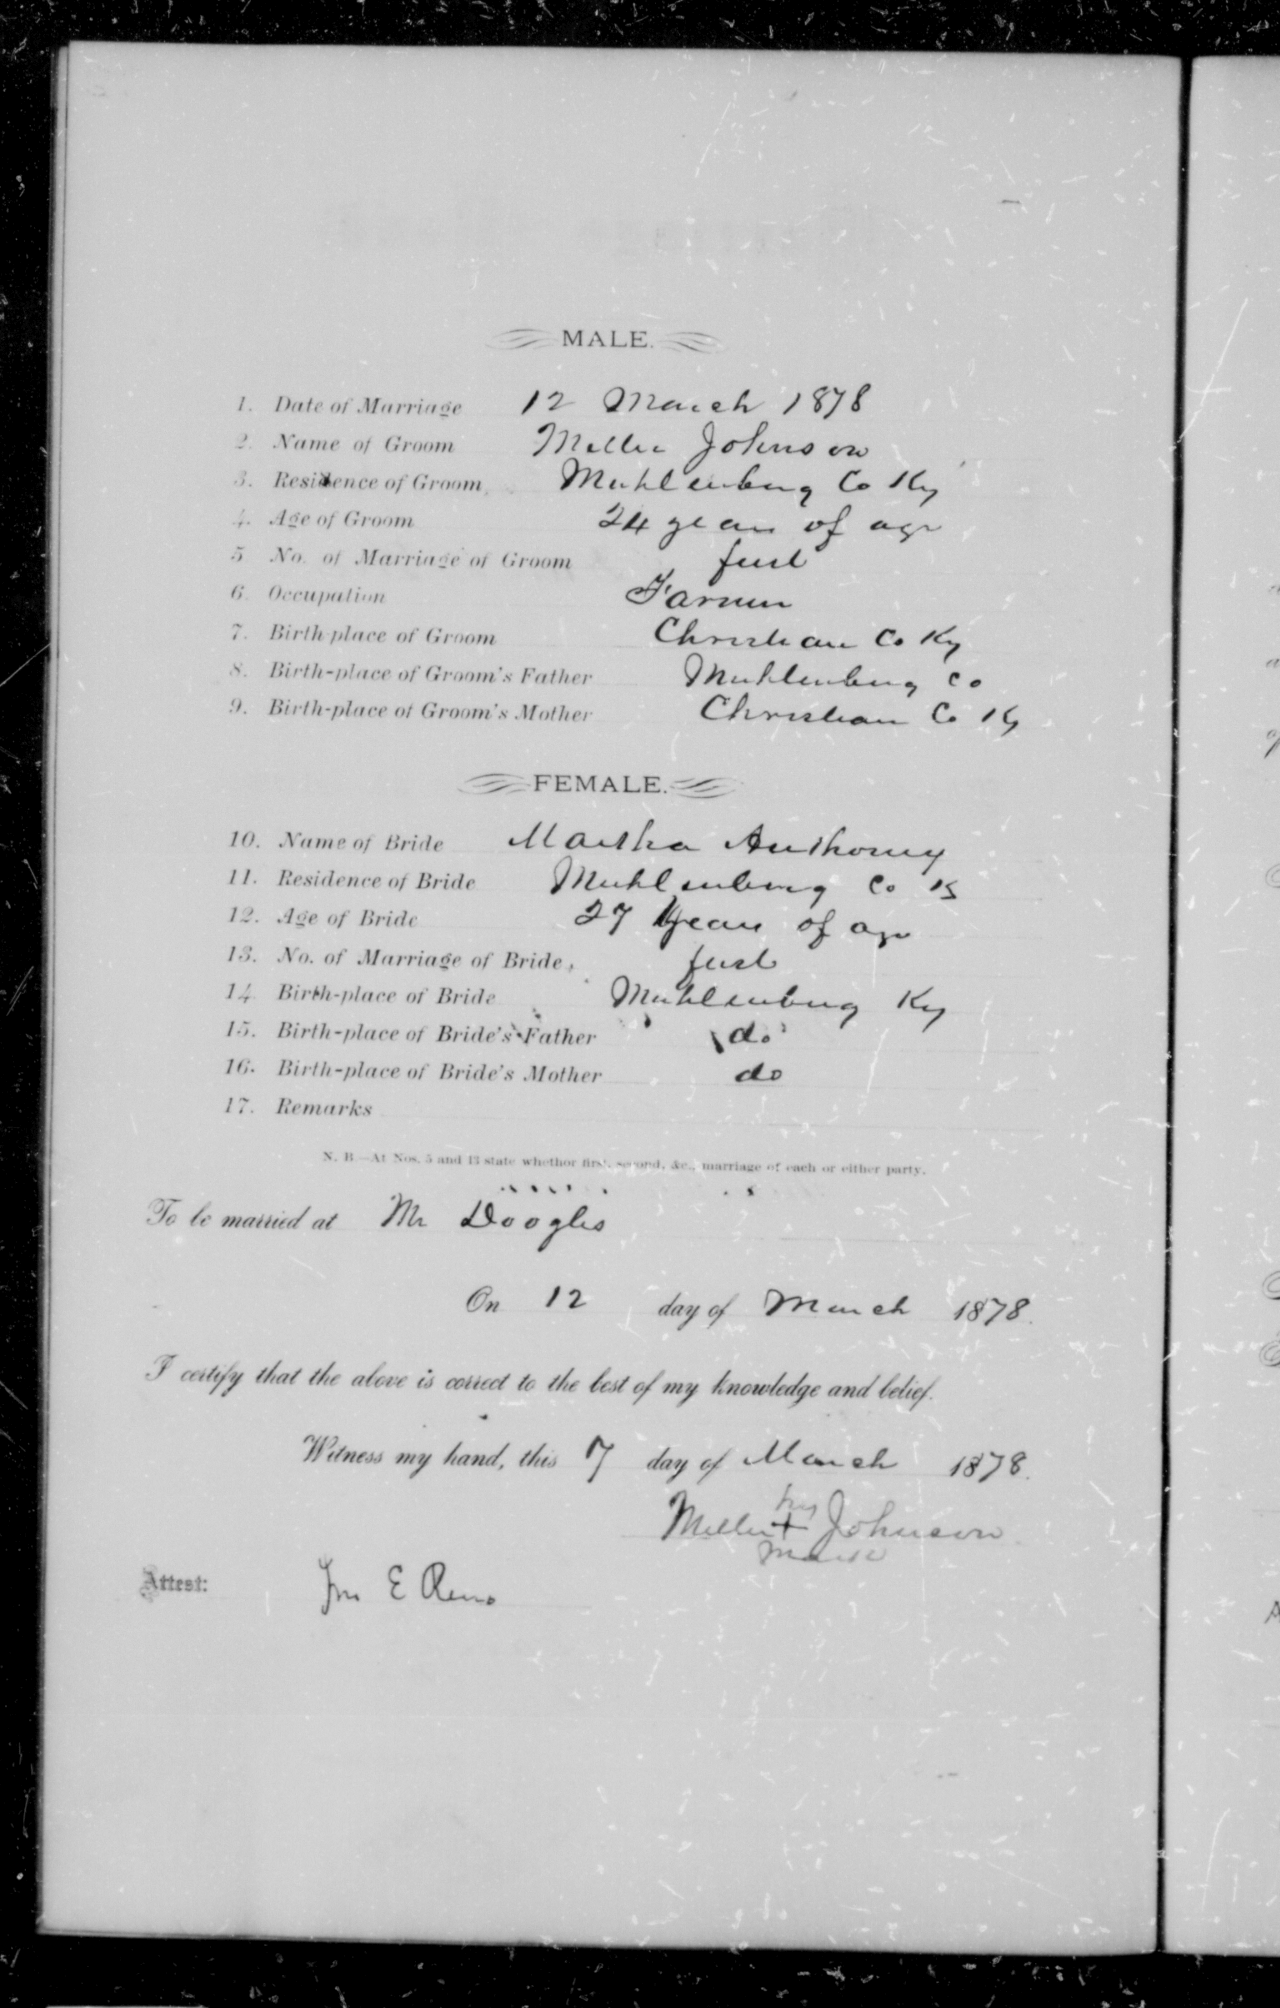 MALE.
1. Date of Marriage 12 March 1878
2. Name of Groom Miller Johnson
3. Residence of Groom, Muhlenburg Co Ky
4. Age of Groom 24 years of age
5 No. of Marriage of Groom first
6. Occupation Farmer
7. Birth-place of Groom Christian Co Ky
8. Birth-place of Groom's Father Muhlenburg Co
9. Birth-place of Groom's Mother Christian Co Ky
FEMALE.
10. Name of Bride Martha Anthony
11. Residence of Bride Muhlenburg Co Ky
12. Age of Bride 27 Years of age
13. No. of Marriage of Bride, first
14 Birth-place of Bride Muhlenburg Ky
15. Birth-place of Bride's Father do
16. Birth-place of Bride's Mother do
17. Remarks
N. B.—At Nos. 5 and 13 state whethor first, second, &c., marriage of each or either party.
To be married at Mr Doogles
On 12 day of March 1878.
I certify that the above is correct to the best of my knowledge and belief.
Witness my hand, this 7 day of March 1878.
his
Miller + Johnson
Mark
Attest: Jno E Reno